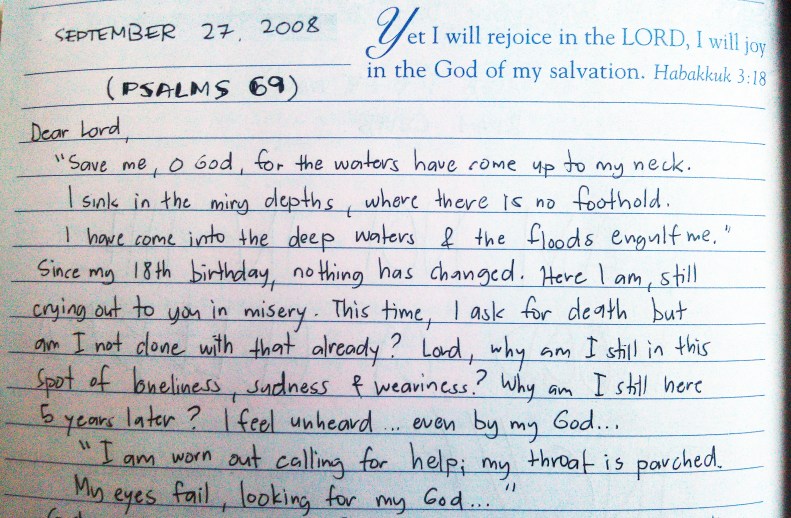 SEPTEMBER 27. 2008
Yet I will rejoice in the LORD, I will joy
in the God of my salvation. Habakkuk 3:18
(PSALMS 69)
Dear Lord,
"Save me, O God, for the waters have come up to my neck.
I sink in the miry depths, where there is no foothold.
I have come into the deep waters & the floods engulf me."
Since my 18th birthday, nothing has changed. Here I am, still
crying out to you in misery. This time, I ask for death but
am I not done with that already? Lord, why am I still in this
spot of loneliness, sadness & weariness? Why am I still here
5 years later? I feel unheard ... even by my God...
"I am worn out calling for help; my throat is parched.
My eyes fail, looking for my God..."